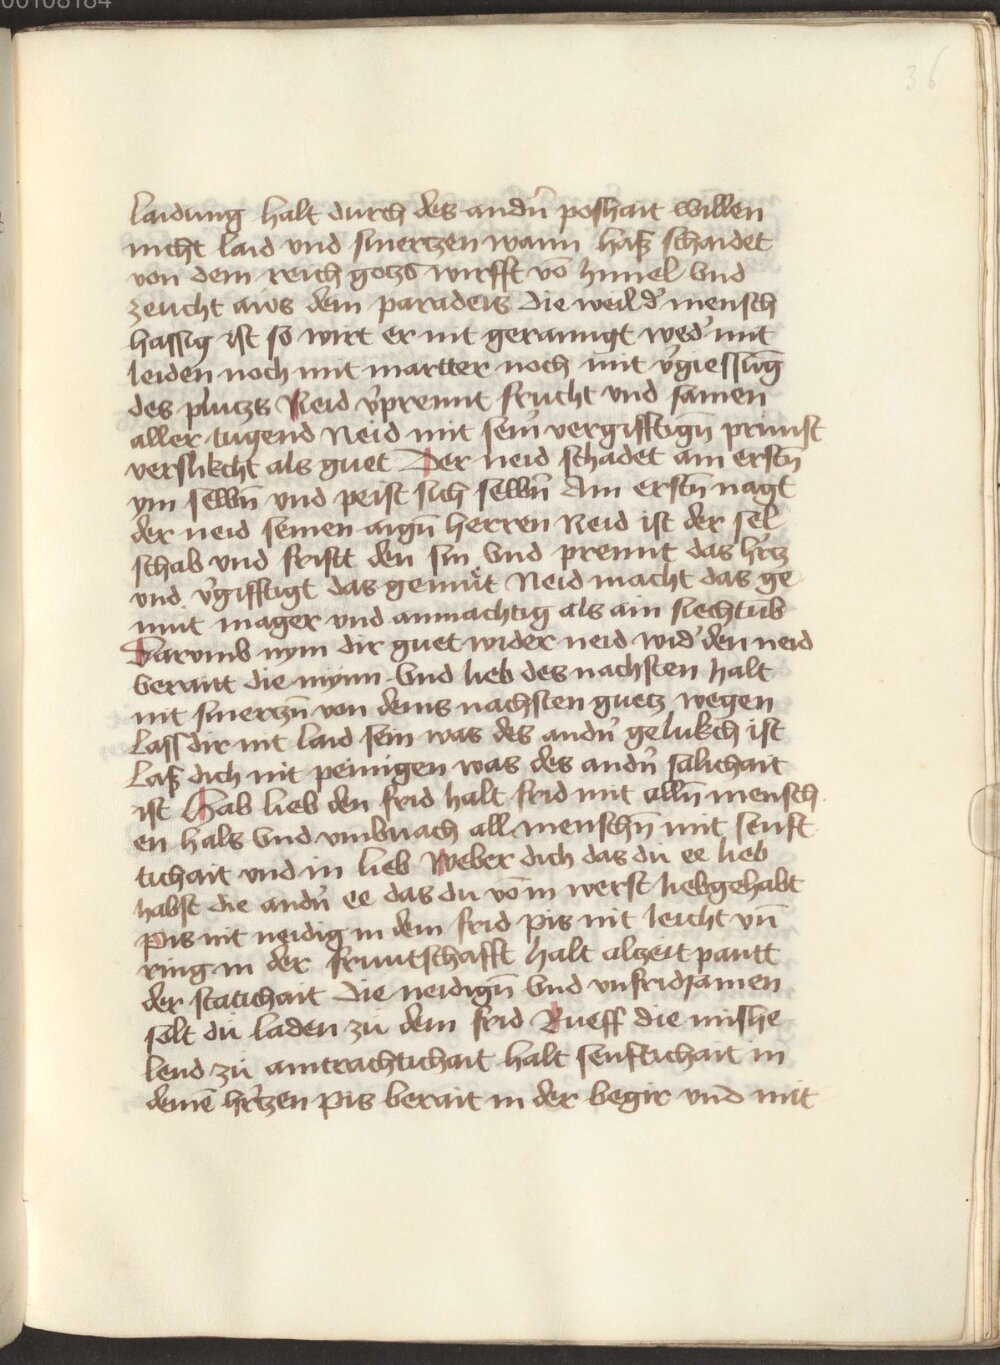 00108184
36
laidung halt durch des andn̄ poshait willen
nicht laid vnd smertzen wann haß schaidet
von dem reich gotzs wirfft vō himel vnd
zeucht aws dem paradeis die weil d' mensch
hassig ist so wirt er nit gerainigt wed' mit
leiden noch mit martter noch mit v'giessūg
des pluetzs Neid v'prennt frucht vnd samen
aller tugend Neid mit seīn vergifftign̄ prunst
verslikcht als guet Der neid schadet am erstn̄
ym selbn̄ vnd peist sich selbn̄ Am erstn̄ nagt
der neid seinen aign̄ herren Neid ist der sel
schab vnd fristt den sin vnd prennt das h'tz
vnd v'gifftigt das gemüt Neid macht das ge
müt mager vnd anmachtig als ain siechtūb
Darvmb nym dir guet wider neid wid' den neid
berautt die mynn vnd lieb des nachsten halt
nit smertzn̄ von deins nachsten guetz wegen
Lass dir nit laid sein was des andn̄ gelukch ist
Laß dich nit peinigen was des andn̄ salichait
ist Hab lieb den frid halt frid mit alln̄ mensch
en hals vnd vmbuach all menschn̄ mit senft
tichait vnd in lieb Weber dich das du ee lieb
habst die andn̄ ee das du vō in werst liebgehabt
Pis nit neidig in dem frid Pis nit leicht vn̄
ring in der fruntschafft halt alzeit pantt
der statichait Die neidign̄ vnd vnfridsamen
solt du laden zu dem frid Rueff die mishe
lend zu aintrachtichait halt senftichait in
deinē h'tzen Pis berait in der begir vnd mit